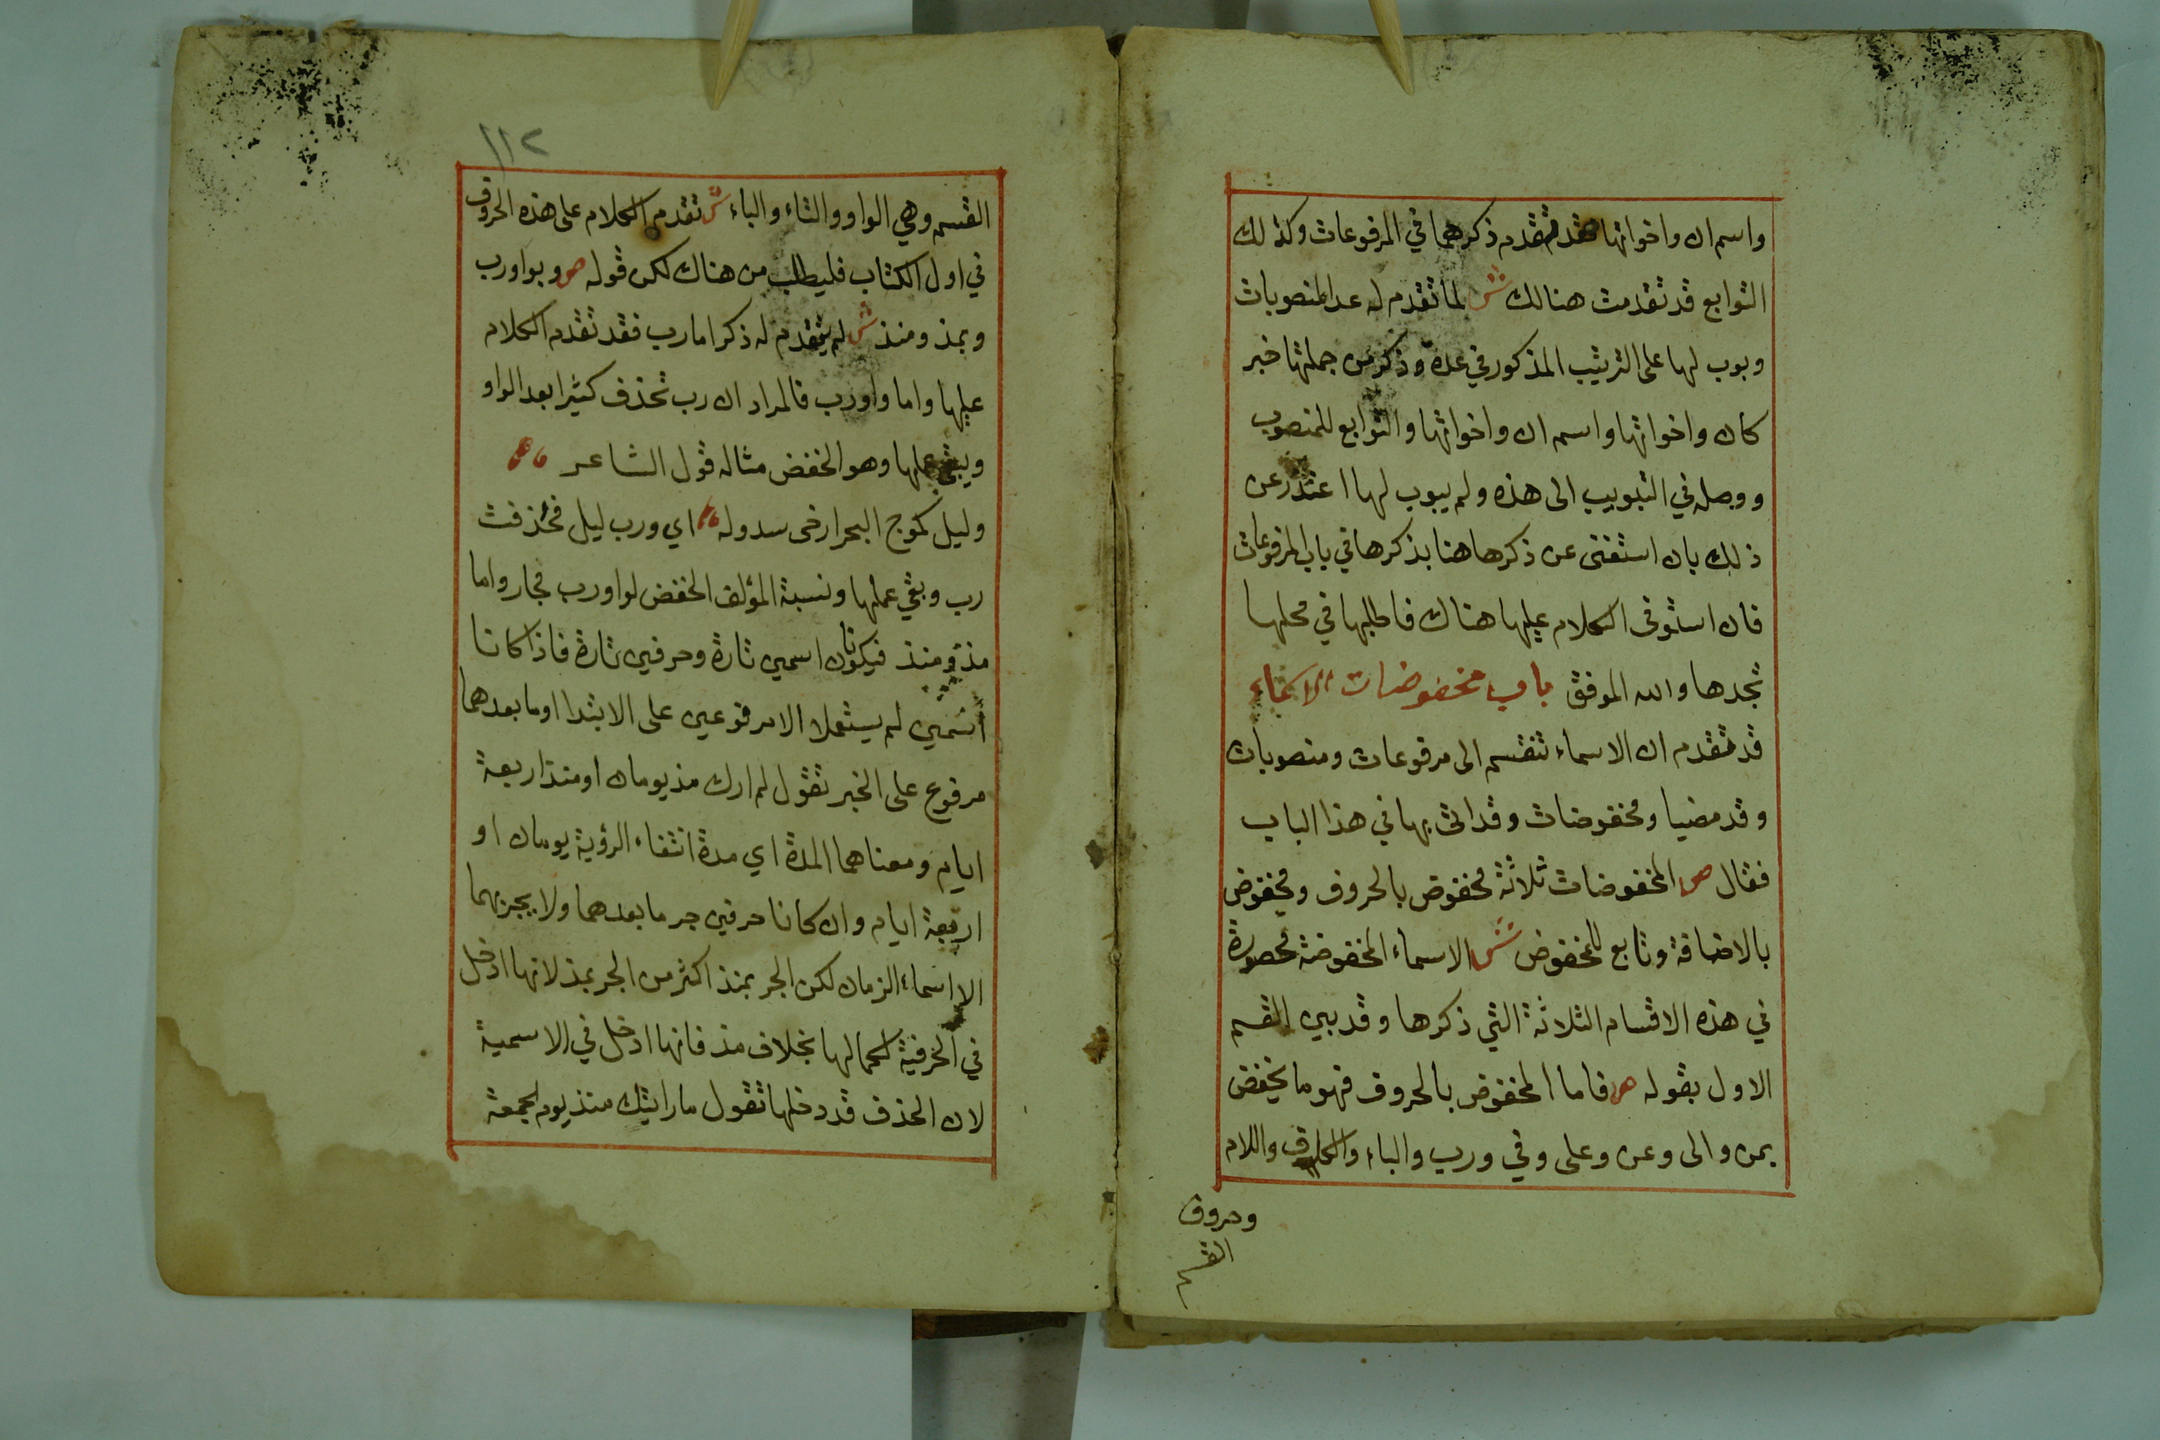 واسم ان واخواتها فقد تقدم ذكرهما في المرفوعات وكذلك
التوابع قد تقدمت هنالك ش لما تقدم له عد المنصوبات
وبوب لها على الترتيب المذكور في عده وذكر من جملتها خبر
كان واخواتها واسم ان واخواتها والتوابع للمنصوب
ووصله في التبويب الى هذه ولم يبوب لها اعتذر عن
ذلك بان استغنى عن ذكرها هنا بذكرها في باب المرفوعات
فان استوفى الكلام عليها هناك فاطلبها في محلها
تجدها والله الموفق باب مخفوضات الاسماء
قد تقدم ان الاسماء تنقسم الى مرفوعات ومنصوبات
وقد مضيا ومخفوضات وقد اتى بها في هذا الباب
فقال ص المخفوضات ثلاثة مخفوض بالحروف ومخفوض
بالاضافة وتابع للمخفوض ش الاسماء المخفوضة محصورة
في هذه الاقسام الثلاثة التي ذكرها وقد بين القسم
الاول بقوله ص فاما المخفوض بالحروف فهو ما يخفض
بمن والى وعن وعلى وفي ورب والباء والكاف واللام
وحروف
القسم
١١٢
القسم وهي الواو والتاء والباء ش تقدم الكلام على هذه الحروف
في اول الكتاب فليطلب من هناك لكن قوله ص وبواو رب
وبمذ ومنذ ش لم يتقدم له ذكر اما رب فقد تقدم الكلام
عليها واما واو رب فالمراد ان رب تحذف كثيرا بعد الواو
ويبقى عملها وهو الخفض مثاله قول الشاعر
وليل كموج البحر ارخى سدوله اي ورب ليل فحذفت
رب وبقي عملها ونسبة المؤلف الخفض لواو رب مجاز واما
مذ ومنذ فيكونان اسمين تارة وحرفين تارة فاذا كانا
اسمين لم يستعملا الا مرفوعين على الابتدا وما بعدهما
مرفوع على الخبر تقول لم ارك مذ يومان او منذ اربعة
ايام ومعناهما المدة اي مدة انتفاء الرؤية يومان او
اربعة ايام وان كانا حرفين جر ما بعدهما ولا يجر بهما
الا اسماء الزمان لكن الجر بمنذ اكثر من الجر بمذ لانها ادخل
في الحرفية لكمالها بخلاف مذ فانها ادخل في الاسمية
لان الحذف قد دخلها تقول ما رايتك منذ يوم الجمعة